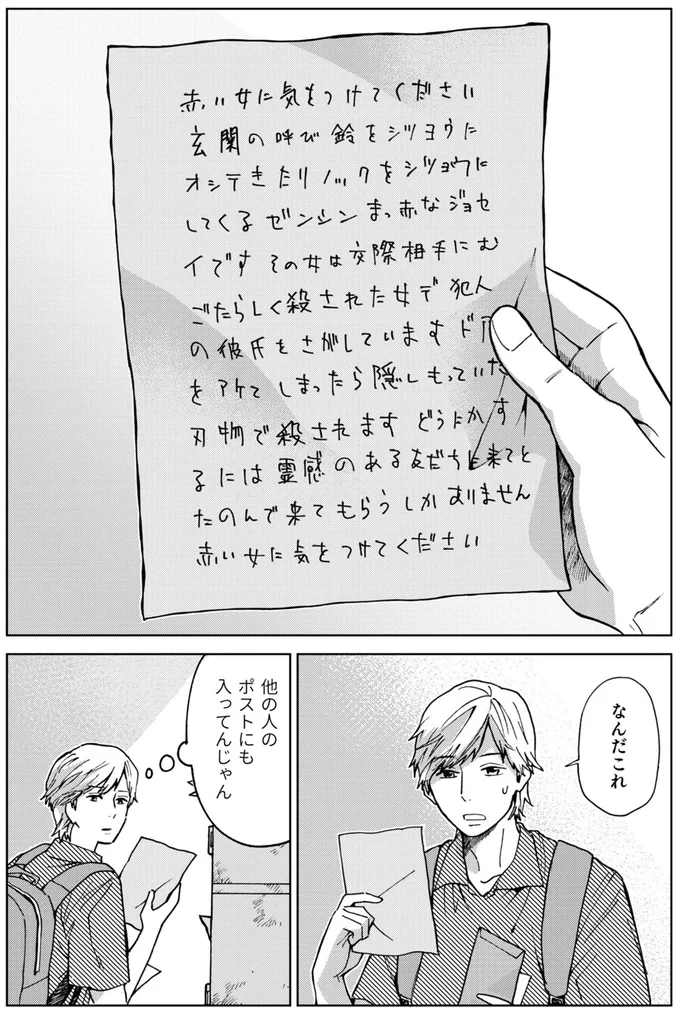 赤い女に気をつけてください
玄関の呼び鈴をシツヨウに
オシテきたりノックをシツヨウに
してくるゼンシンまっ赤なジョセ
イですその女は交際相手にむ
ごたらしく殺された女デ犯人
の彼氏をさがしていますドア
をアケてしまったら隠しもっていた
刃物で殺されますどうにかす
るには霊感のある友だちに来てと
たのんで来てもらうしかありません
赤い女に気をつけてください
なんだこれ
他の人の
ポストにも
入ってんじゃん